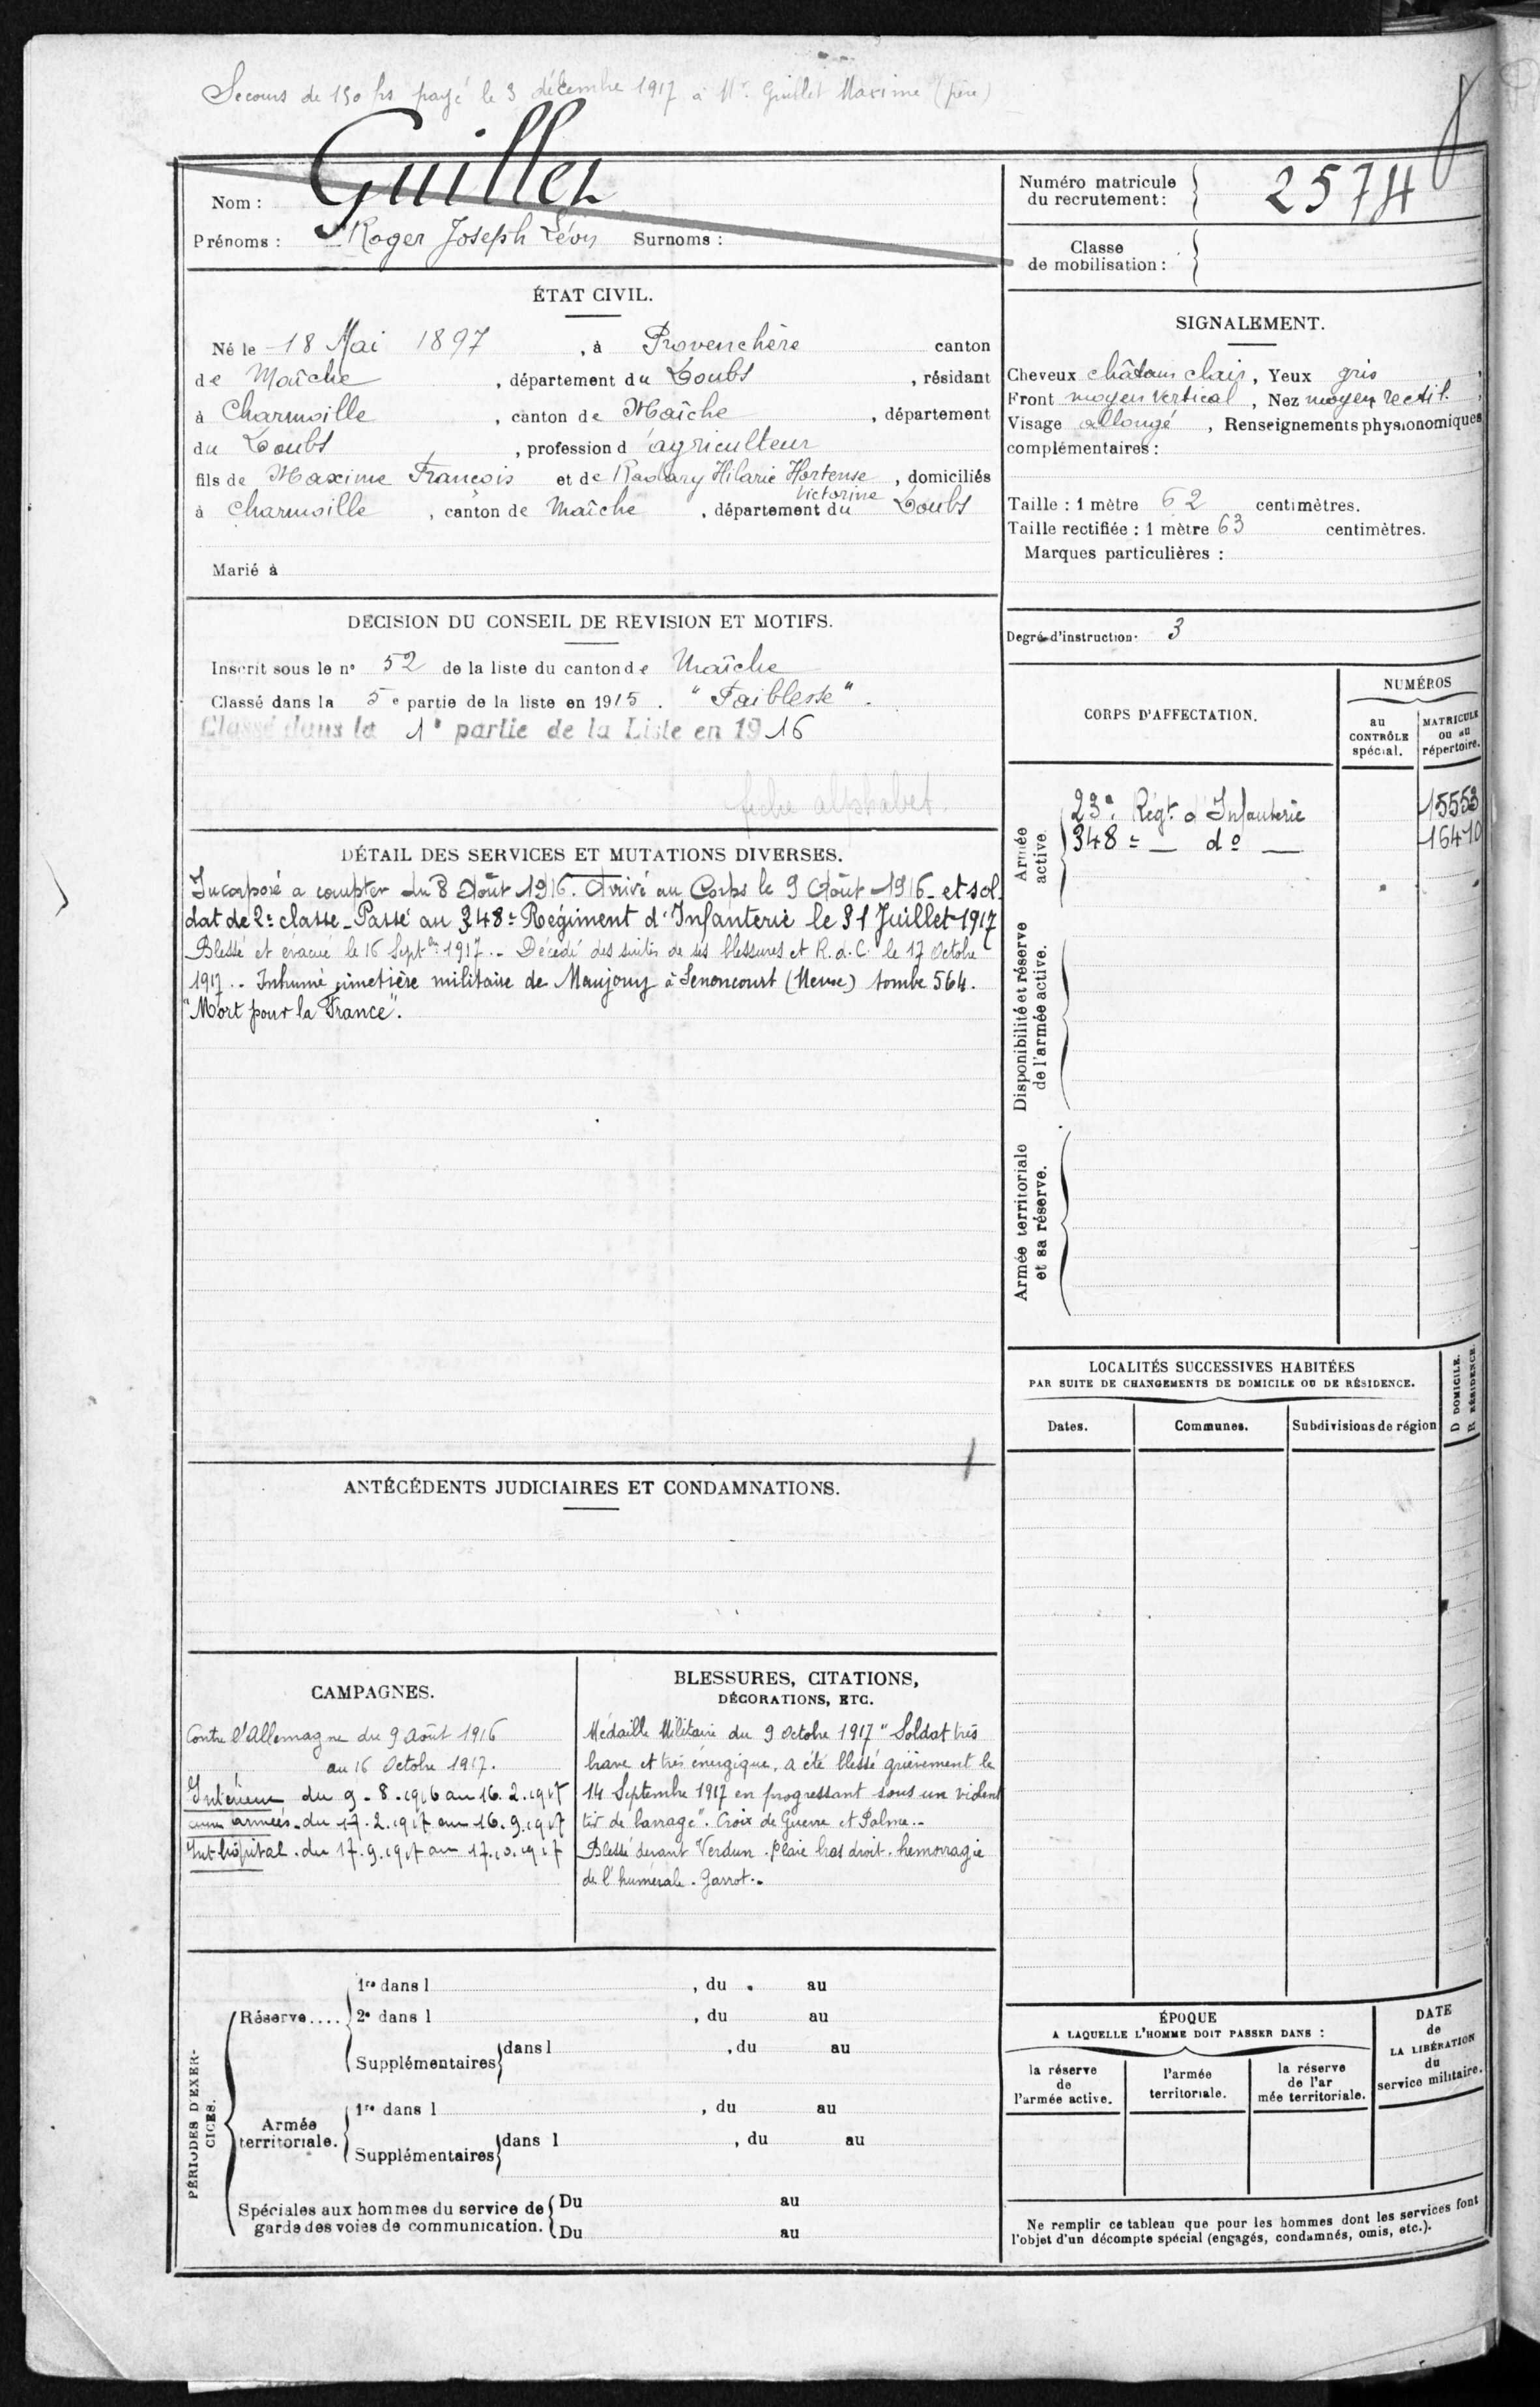 Secours de 150 frs payé le 3 décembre 1917 à Mr Guillet Maxime (père)
Nom : Guillet
Prénoms : Roger Joseph Léon Surnoms :
Numéro matricule du recrutement : 2574
Classe de mobilisation :
ÉTAT CIVIL.
Né le 18 Mai 1897, à Provenchère canton
de Maîche, département du Doubs, résidant
à Charmoille, canton de Maîche, département
du Doubs, profession d'agriculteur
fils de Maxime François et de Hilarie Hortense, domiciliés
Victorine
à Charmoille, canton de Maîche, département du Doubs
Marié à
SIGNALEMENT.
Cheveux châtain clair, Yeux gris,
Front moyen vertical, Nez moyen rectil.,
Visage allongé, Renseignements physionomiques
complémentaires :
Taille : 1 mètre 62 centimètres.
Taille rectifiée : 1 mètre 63 centimètres.
Marques particulières :
Degré d'instruction : 3
DÉCISION DU CONSEIL DE REVISION ET MOTIFS.
Inscrit sous le n° 52 de la liste du canton de Maîche
Classé dans la 5e partie de la liste en 1915. "Faiblesse".
Classé dans la 1e partie de la Liste en 1916
fiche alphabet.
DÉTAIL DES SERVICES ET MUTATIONS DIVERSES.
Incorporé a compter du 8 Août 1916. Arrivé au Corps le 9 Août 1916 - et sol
dat de 2e classe - Passé au 348e Régiment d'Infanterie le 31 Juillet 1917
Blessé et evacué le 16 Sept-bre 1917.- Décédé des suites de ses blessures et R.d.C. le 17 Octobre
1917.- Inhumé cimetière militaire de Maujouy à Senoncourt (Meuse) tombe 564.
"Mort pour la France".
CORPS D'AFFECTATION.
NUMÉROS
au CONTRÔLE spécial.
MATRICULE ou au répertoire.
Armée active.
23e Régt d'Infanterie 15553
348e — do — 16410
Disponibilité et réserve de l'armée active.
Armée territoriale et sa réserve.
ANTÉCÉDENTS JUDICIAIRES ET CONDAMNATIONS.
LOCALITÉS SUCCESSIVES HABITÉES
PAR SUITE DE CHANGEMENTS DE DOMICILE OU DE RÉSIDENCE.
D DOMICILE.
R RÉSIDENCE.
Dates. Communes. Subdivisions de région
CAMPAGNES.
Contre l'Allemagne du 9 août 1916
au 16 Octobre 1917.
Intérieur du 9-8-1916 au 16.2.1917
aux armées du 17.2.1917 au 16.9.1917
Int hôpital. du 17.9.1917 au 17.10.1917
BLESSURES, CITATIONS,
DÉCORATIONS, ETC.
Médaille Militaire du 9 Octobre 1917 "Soldat très
brave et très énergique, a été blessé grièvement le
14 Septembre 1917 en progressant sous un violent
tir de barrage". Croix de Guerre et Palme.-
Blessé devant Verdun. Plaie bras droit. hemorragie
de l'humérale. Garrot.-
PÉRIODES D'EXERCICES.
Réserve....
1re dans l , du au
2e dans l , du au
Supplémentaires dans l , du au
Armée territoriale.
1re dans l , du au
Supplémentaires dans l , du au
Spéciales aux hommes du service de
garde des voies de communication.
Du au
Du au
ÉPOQUE
A LAQUELLE L'HOMME DOIT PASSER DANS :
DATE de LA LIBÉRATION du service militaire.
la réserve de l'armée active.
l'armée territoriale.
la réserve de l'armée territoriale.
Ne remplir ce tableau que pour les hommes dont les services font
l'objet d'un décompte spécial (engagés, condamnés, omis, etc.).